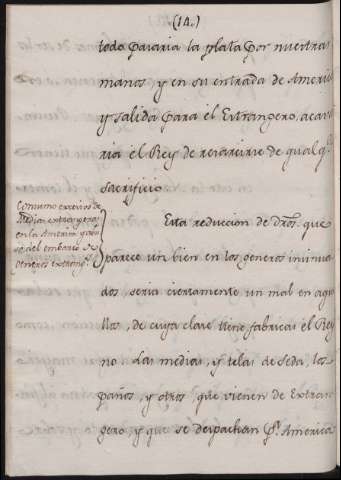 (14.)
todo pasaria la plata por nuestras
manos y en su entrada de America
y salida para el Extrangero, acava
ria el Rey de resarcirse de qualq.r
sacrificio
Consumo excesivo de
Medias extrangeras
en la America
el embarco de
Generos extrang.s
Esta reduccion de dros. que
parece un bien en los generos insinua
dos seria ciertamente un mal en aque
llos, de cuya clase tiene fabricas el Rey
no Las medias, y telas de seda, los
paños, y otros que vienen de Extran
gero y que se despachan p.a America